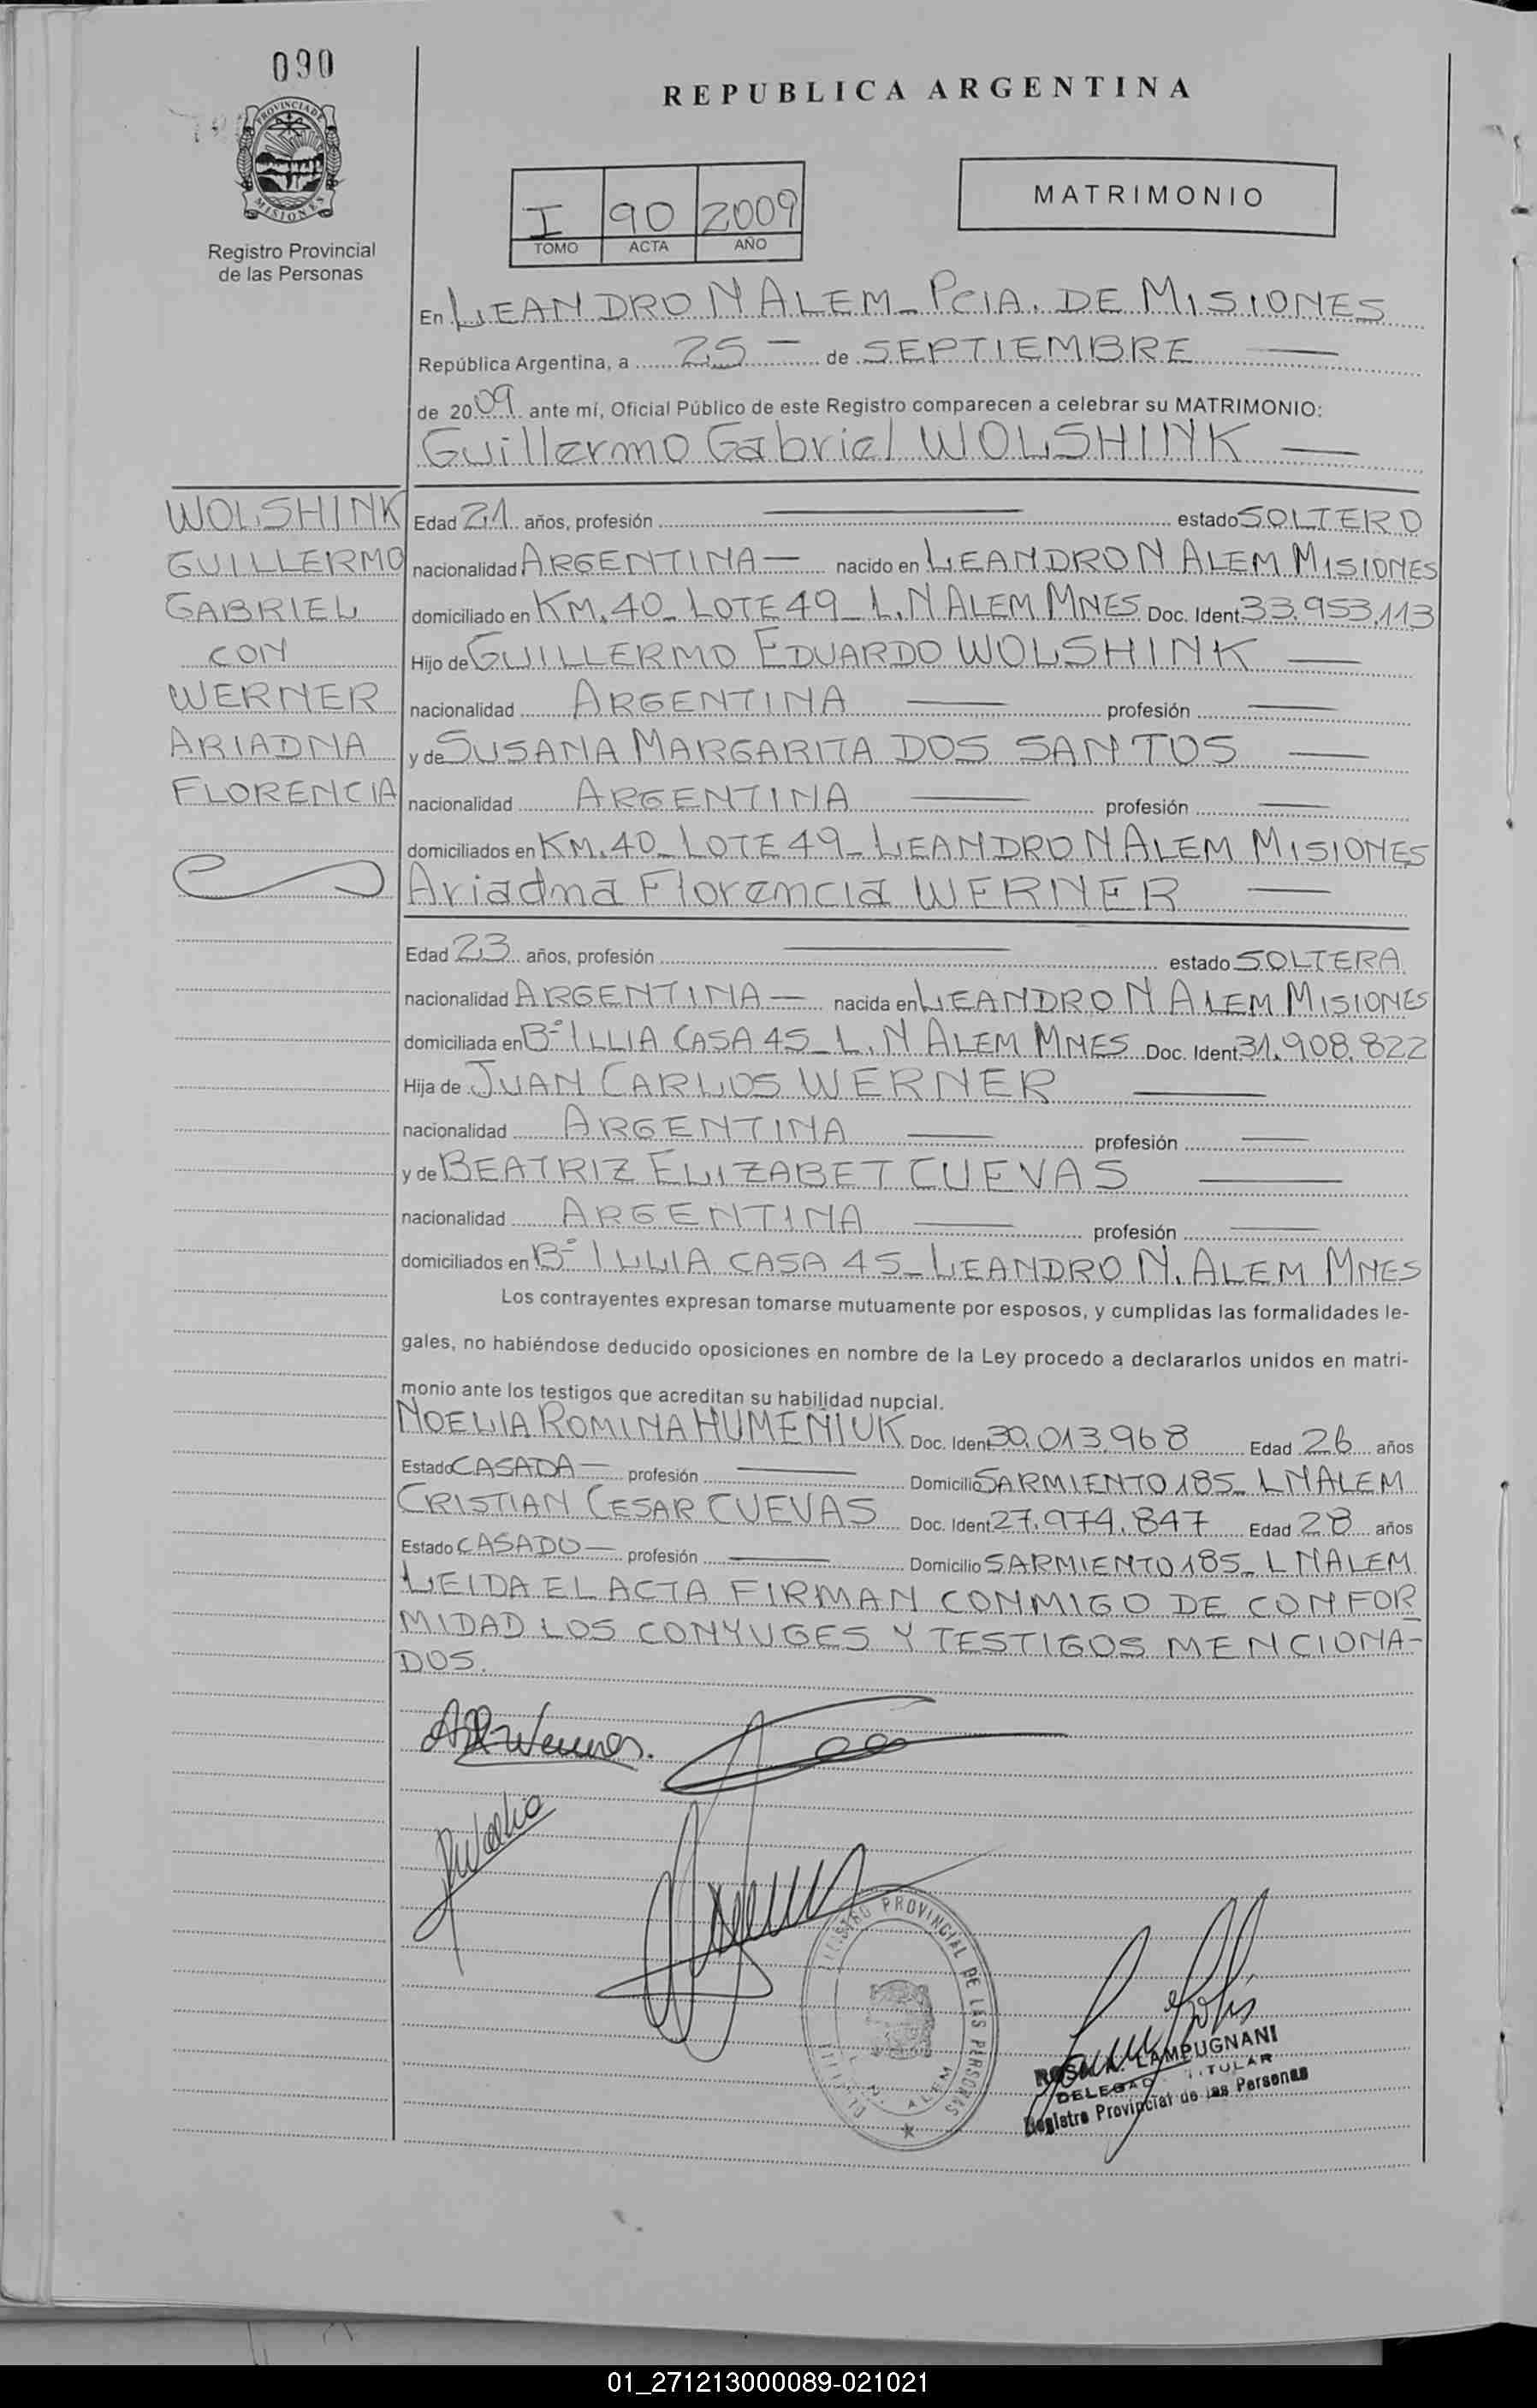 090
PROVINCIA DE
MISIONES
Registro Provincial
de las Personas
REPUBLICA ARGENTINA
I 90 2009
TOMO ACTA AÑO
MATRIMONIO
En LEANDRO N ALEM_ PCIA. DE MISIONES
República Argentina, a 25 — de SEPTIEMBRE —
de 2009 ante mí, Oficial Público de este Registro comparecen a celebrar su MATRIMONIO:
Guillermo Gabriel WOLSHINK —
WOLSHINK
GUILLERMO
GABRIEL
CON
WERNER
ARIADNA
FLORENCIA
Edad 21 años, profesión — estado SOLTERO
nacionalidad ARGENTINA — nacido en LEANDRO N ALEM MISIONES
domiciliado en KM. 40_ LOTE 49_ L. N ALEM MNES Doc. Ident. 33.953.113
Hijo de GUILLERMO EDUARDO WOLSHINK —
nacionalidad ARGENTINA — profesión —
y de SUSANA MARGARITA DOS SANTOS —
nacionalidad ARGENTINA — profesión —
domiciliados en KM. 40_ LOTE 49_ LEANDRO N ALEM MISIONES
Ariadna Florencia WERNER —
Edad 23 años, profesión — estado SOLTERA
nacionalidad ARGENTINA — nacida en LEANDRO N ALEM MISIONES
domiciliada en Bº ILLIA CASA 45_ L. N ALEM MNES Doc. Ident. 31.908.822
Hija de JUAN CARLOS WERNER —
nacionalidad ARGENTINA — profesión —
y de BEATRIZ ELIZABET CUEVAS —
nacionalidad ARGENTINA — profesión —
domiciliados en Bº ILLIA CASA 45_ LEANDRO N. ALEM MNES
Los contrayentes expresan tomarse mutuamente por esposos, y cumplidas las formalidades le-
gales, no habiéndose deducido oposiciones en nombre de la Ley procedo a declararlos unidos en matri-
monio ante los testigos que acreditan su habilidad nupcial.
NOELIA ROMINA HUMENIUK Doc. Ident. 30.013.968 Edad 26 años
Estado CASADA — profesión — Domicilio SARMIENTO 185_ L N ALEM
CRISTIAN CESAR CUEVAS Doc. Ident. 27.974.847 Edad 28 años
Estado CASADO — profesión — Domicilio SARMIENTO 185_ L N ALEM
LEIDA EL ACTA FIRMAN CONMIGO DE CONFOR
MIDAD LOS CONYUGES Y TESTIGOS MENCIONA-
DOS.
PROVINCIAL DE LAS PERSONAS
ALEM
LAMPUGNANI
TITULAR
Registro Provincial de las Personas
01_271213000089-021021